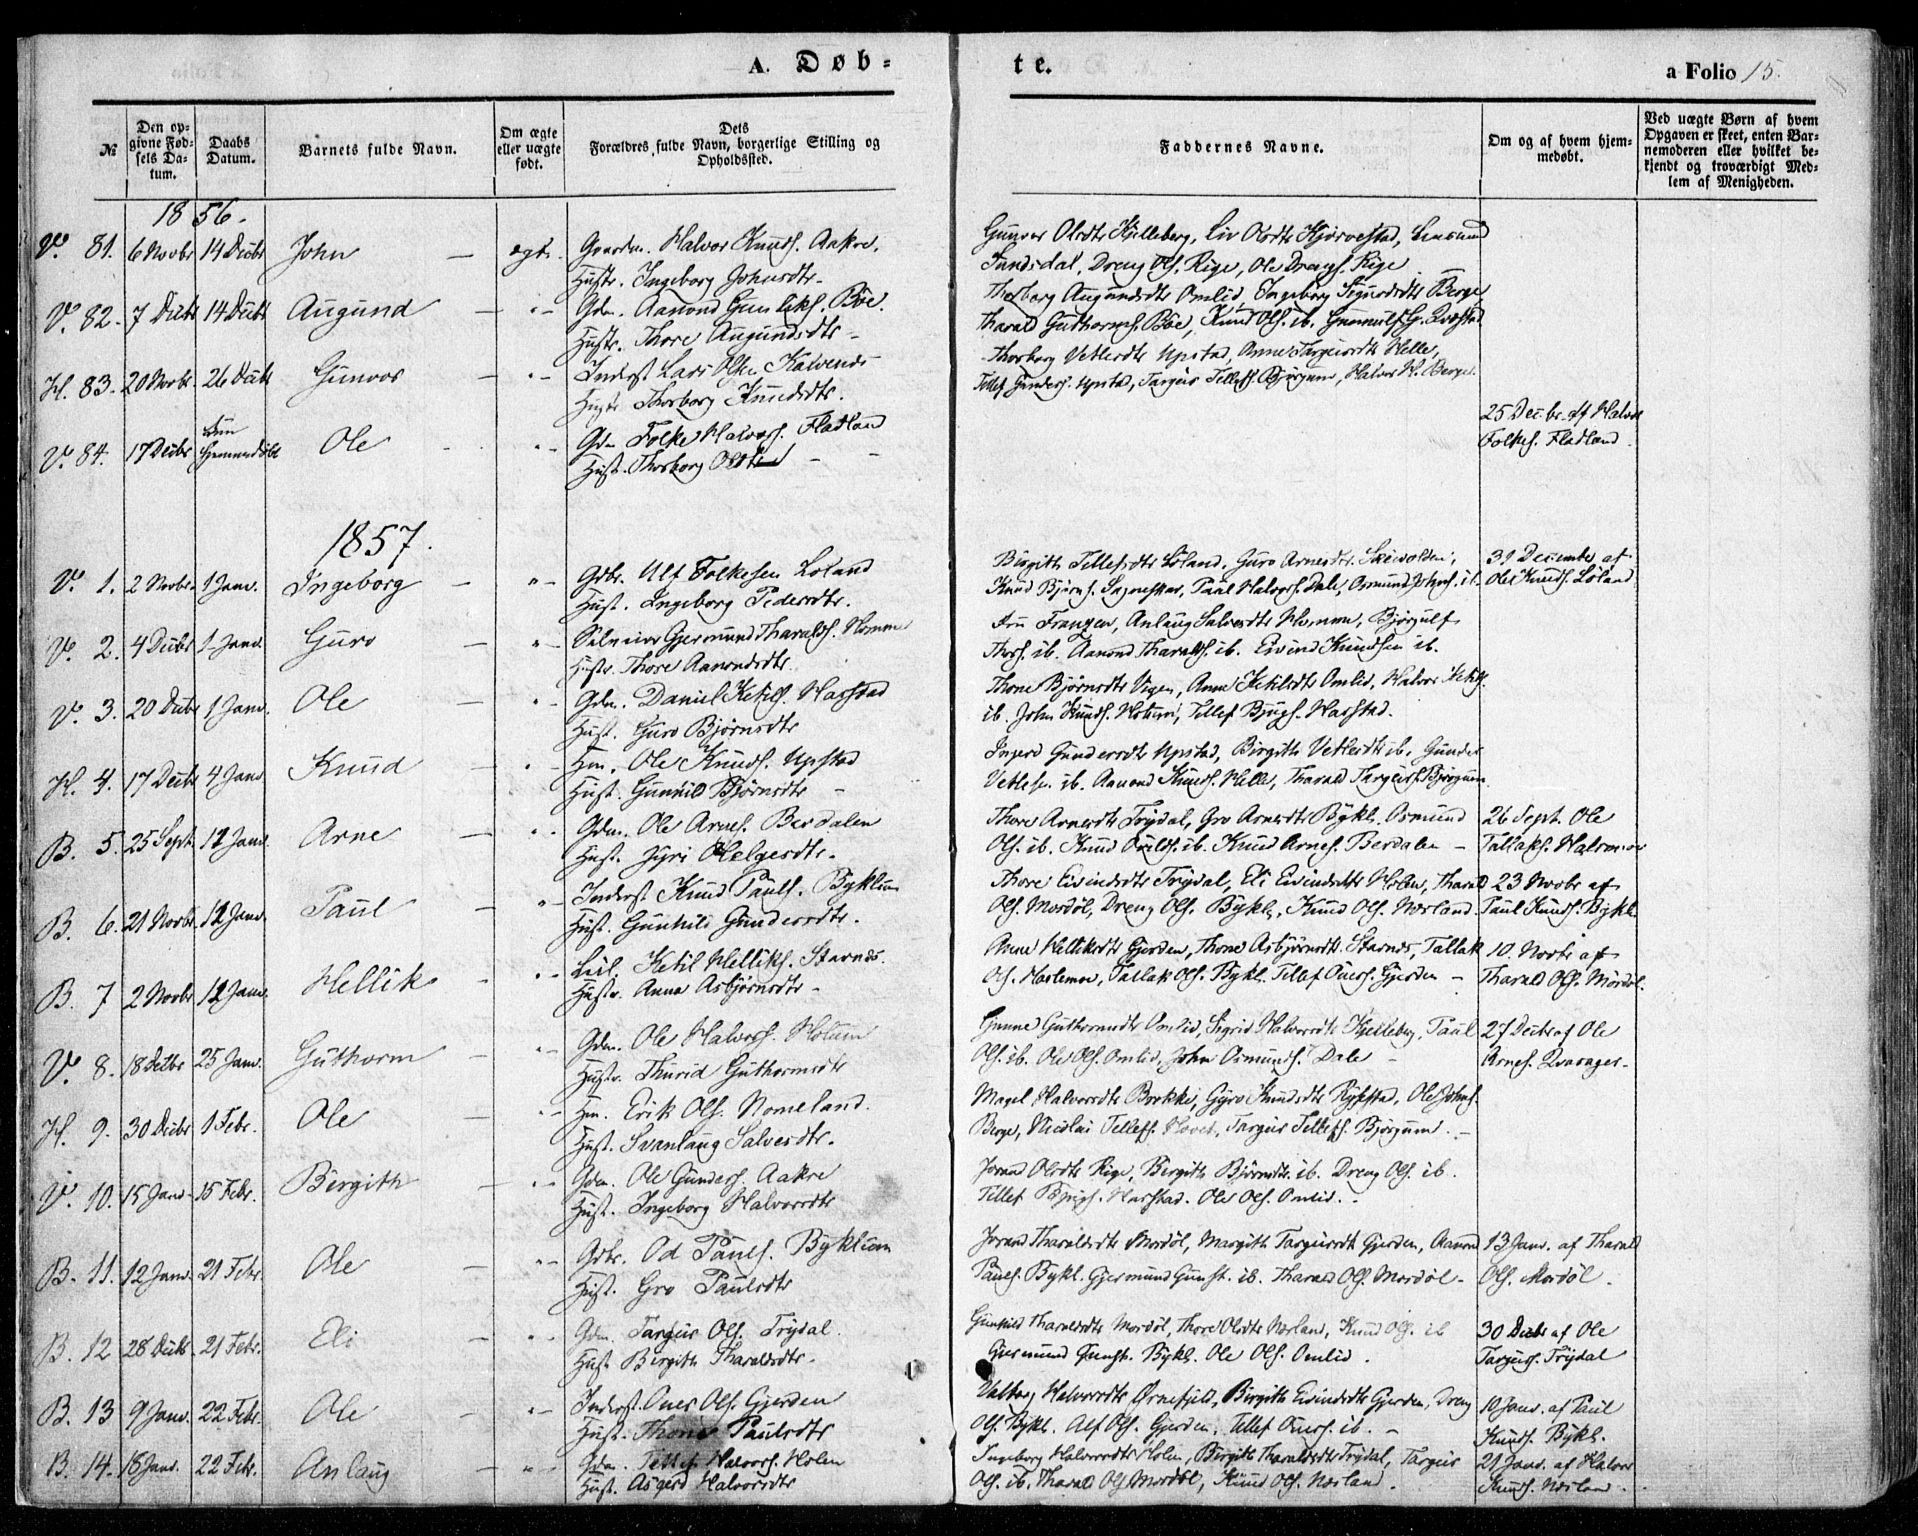 A. Døb-
te.
a Folio 15.
№
Den op-
givne Fød-
sels Da-
tum.
Daabs
Datum.
Barnets fulde Navn.
Om ægte
eller uægte
født.
Dets
Forældres fulde Navn, borgerlige Stilling og
Opholdssted.
Faddernes Navne.
Om og af hvem hjem-
medøbt.
Ved uægte Børn af hvem
Opgaven er skeet, enten Bar-
nemoderen eller hvilket be-
kjendt og troværdigt Med-
lem af Menigheden.
1856.
V. 81. 6 Novbr 14 Decbr John — ægte. Gaardm. Halvor Knuds. Aakre.
Hustr. Ingeborg Johnsdtr.
Gunvor Olsdtr Kjelleberg, Liv Olsdtr Kjørvestad,
Dreng Ols. Rige, Ole Drengs. Rige
V. 82. 7 Decbr 14 Decbr Augund — "- Gdm. Aanond Gunleiks. Bøe.
Hustr. Thore Augundsdtr -
Thorborg Augundsdtr Omlid, Ingeborg Sigurdsdtr Berge,
Tharald Guthorms. Bøe, Knud Ols. ib.
H. 83. 20 Novbr. 26 Decbr Gunvor — "- Inderst Lars Olsen
Hustr. Thorborg Knudsdtr.
Thorborg Vetlesdtr Upstad, Anne Targeirsdtr Helle,
Tellef Gunders. Upstad, Targeir Tellefs. Bjørgum, Halvor H. Berge.
V. 84. 17 Decbr Hjemmedøbt Ole - "- Gdm Folke Halvors. Fladland
Hust. Thorborg - -
25 Decbr. af Halvor
Folkes. Fladland.
1857.
V. 1. 2 Novbr. 1 Janv. Ingeborg — "- Gdbr. Ulf Folkesen Løland
Hust. Ingeborg Pedersdtr.
Birgith Tellefsdtr Løland, Guro Arnesdtr.
Knud Bjørns. Paul Halvors. Dale, Osmund Johns. ib.
31 December af
Ole Knuds. Løland
V. 2. 4 Decbr 1 Janv. Guro — "- Gjermund Tharalds. Homme
Hustr. Thore Aanondsdtr.
Anlaug Salvesdtr Homme, Bjørgulf
Thors. ib. Aanond Tharalds. ib. Eivind Knudsen ib.
V. 3. 20 Decbr 1 Janv. Ole "- Gdm. Daniel Ketils. Harstad
Hust. Guro Bjørnsdtr
Thone Bjørnsdtr Vigen, Anne Ketilsdtr Omlid, Halvor Ketils.
ib. John Knuds. Tellef Bjugs. Harstad.
H. 4. 17 Decbr 4 Janv Knud — "- Hm. Ole Knuds. Upstad
Hust. Gunhild Bjørnsdtr -
Ingerd Gundersdtr Upstad, Birgith Vetlesdtr ib. Gunder
Vetlesen ib. Aanond Knuds. Helle, Tharald Targeirs. Bjørgum.
B. 5. 25 Sept. 12 Janv. Arne — "- Gdm. Ole Arnes. Berdalen
Hust. Jyri Helgesdtr.
Thore Arnesdtr Trydal, Gro Arnesdtr Bykl. Osmund
Ols. ib. Knud ib. Knud Arnes. Berdalen -
26 Sept. Ole
Tallaks.
B. 6. 21 Novbr. 12 Janv. Paul — "- Inderst Knud Pauls. Byklum
Hust. Gunhild Gundersdtr.
Thore Eivindsdtr Trydal, Eli Eivindsdtr Holen, Tharald
Ols. Mordøl, Dreng Ols. Bykl., Knud Ols. Næsland.
23 Novbr af
Paul Knuds. Bykl.
B. 7 2 Novbr 12 Janv. Hellik - "- Ketil Helliks. Stavnds.
Hustr. Anna Asbjørnsdtr -
Anne Helliksdtr Gjerden, Thone Asbjørnsdtr Stavnds, Tallak
Ols. Hoslemo, Tallak Ols. Bykl. Tellef Gjerden —
10. Novbr af
Tharald Ols. Mordøl.
V. 8. 18 Decbr 25 Janv. Guthorm — "- Gdm. Ole Halvors. Holum
Hustr. Thurid Guthormsdtr
Gunne Guthormsdtr Omlid, Sigrid Halvorsdtr Kjelleberg, Paul
Ols. ib. Ole Ols. Omlid, John Osmunds. Dale -
27 Decbr af Ole
Arnes.
H. 9. 30 Decbr 1 Febr. Ole — "- Hm. Erik Ols. Nomeland.
Hust. Svanlaug Salvesdtr.
Magel Halvorsdtr Brokke, Gyro Knudsdtr Rysstad, Ole Johns.
Berge, Nicolai Tellefs. Hovet, Targeir Tellefs. Bjørgum. -
V. 10. 15 Janv. 15 Febr. Birgith — "- Gdm. Ole Gunders. Aakre
Hust. Ingeborg Halvorsdtr
Joran Olsdtr Rige, Birgith Bjørnsdtr ib. Dreng Ols. ib.
Tellef Bjugs. Harstad. Ole Ols. Omlid. -
B. 11. 12 Janv. 21 Febr. Ole "- Gdbr. Od Pauls. Byklum
Hust. Gro Paulsdtr
Joran Tharaldsdtr Mordøl, Margith Targeirsdtr Gjerden, Aanon
Pauls. Bykl. Gjermund Gunst. ib. Tharald Ols. Mordøl.
13 Janv. af Tharald
Ols. Mordøl.
B. 12 28 Decbr. 21 Febr. Eli — "- Gdm. Targeir Ols. Trydal.
Hust Birgith Tharaldsdtr.
Gunhild Tharaldsdtr Mordøl, Thore Olsdtr Næsland, Knud Ols. ib
Gjermund Gunst. Bykl. Ole Ols. Omlid.
30 Decbr af Ole
Targeirs. Trydal
B. 13 9 Janv. 22 Febr. Ole — "- Inderst. Ols. Gjerden
Hust. Thone Paulsdtr
Valborg Halvorsdtr Ørnefjeld, Birgith Eivindsdtr Gjerden, Dreng
Ols. Bykl. Alf Ols. Gjerden, Tellef ib. -
10 Janv. af Paul
Knuds. Bykl.
B. 14. 18 Janv. 22 Febr. Anlaug — "- Gdm. Tellef Halvors. Holen
Hust. Asgerd Halvorsdtr
Ingeborg Halvorsdtr Holen, Birgith Tharaldsdtr Trydal, Targeir
Ols. ib. Tharald Ols Mordøl, Knud Ols. Næsland.
21 Janv. af Halvor
Knuds. Næsland.